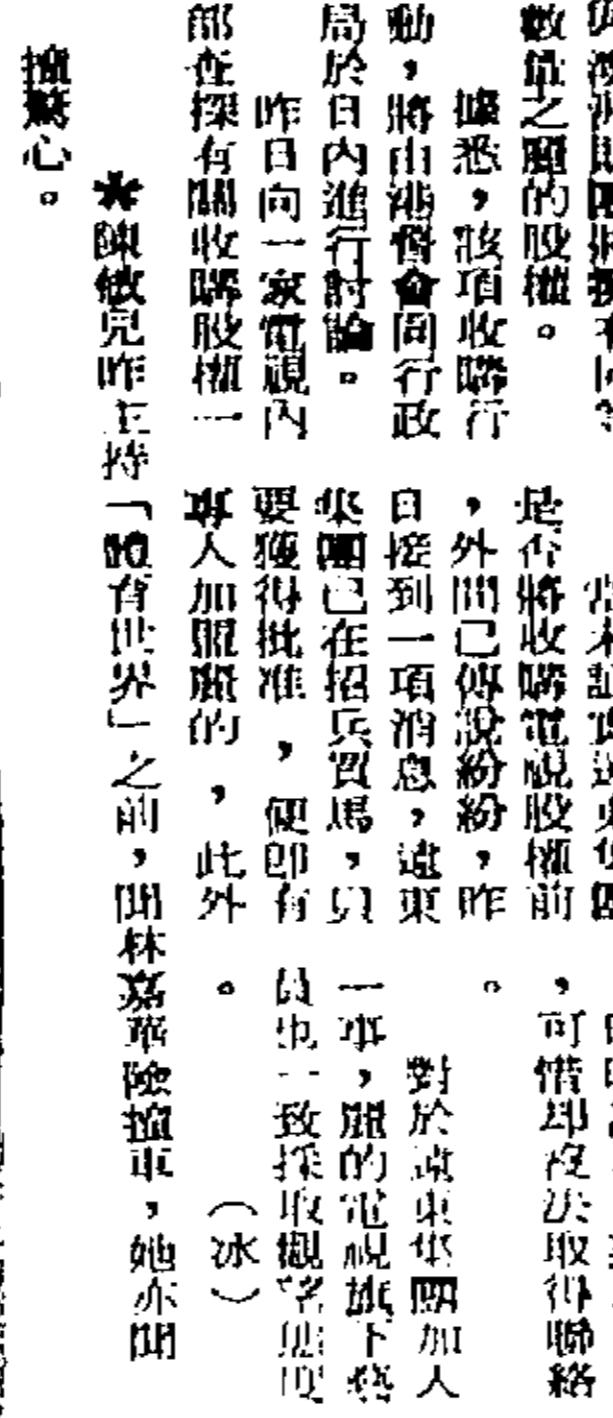 數值之麗的股權。
據悉,該項收購行
動,將由港督會同行政
局於日內進行討論。
昨日向一家電視內
部查探有關收購股權一
是否將收購電視股權前
,外間已傳說紛紛,昨
日接到一項消息,遠東
集團已在招兵買馬,只
要獲得批准,便即有
專人加盟麗的,此外
,可惜却沒法取得聯絡
。
對於遠東集團加入
一事,麗的電視旗下藝
員也一致採取觀望態度
。 (冰)
✱陳敏兒昨主持「體育世界」之前,聞林嘉華險撞車,她亦聞
撞驚心。